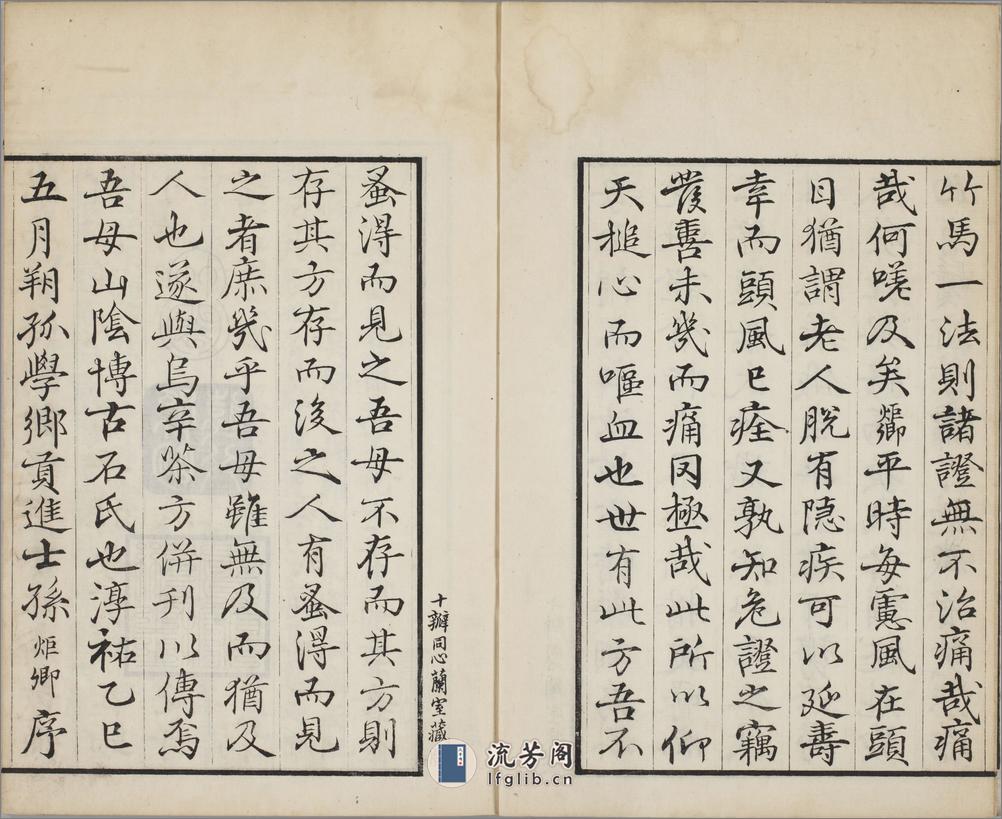 竹馬一法則諸證無不治痛哉痛
哉何嗟及矣炬卿平時每慮風在頭
目猶謂老人脫有隐疾可以延壽
幸而頭風已痊又孰知危證之竊
發善未幾而痛罔極哉此所以仰
天搥心而嘔血也世有此方吾不
蚤得而見之吾母不存而其方則
存其方存而後之人有蚤得而見
之者庶幾乎吾母雖無及而猶及
人也遂與烏辛茶方併刊以傳焉
吾母山陰博古石氏也淳祐乙巳
五月朔孤學鄉貢進士孫炬卿序
十瓣同心蘭室藏
流芳阁
lfglib.cn